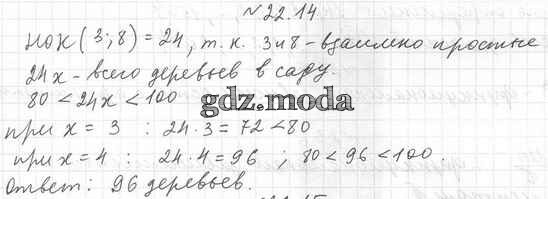 №22.14.
НОК(3;8) = 24, т.к. 3 и 8 - взаимно простые
24х - всего деревьев в саду.
80 < 24х < 100
gdz.moda
при х = 3 : 24·3 = 72 < 80
при х = 4 : 24·4 = 96 ; 80 < 96 < 100.
Ответ: 96 деревьев.